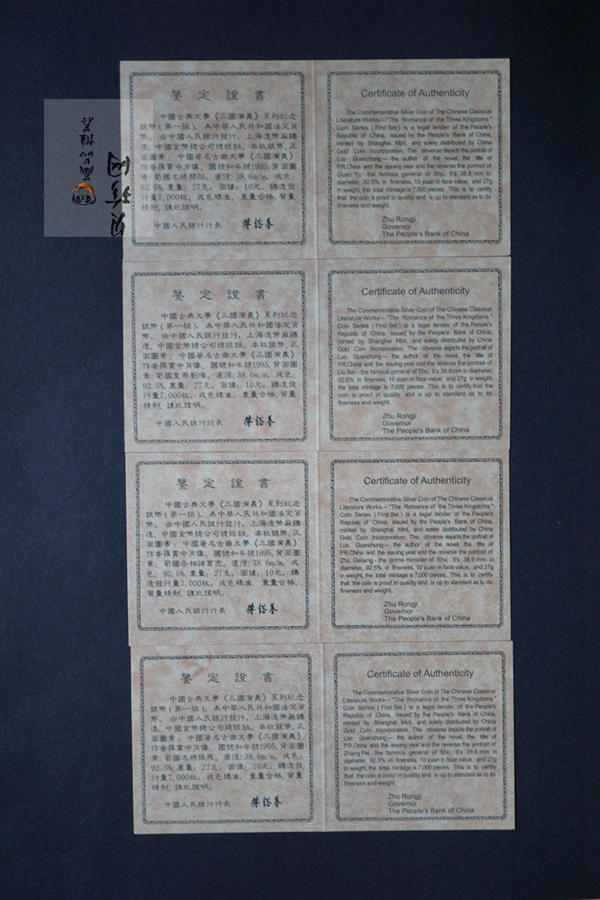 鉴定證書
中國古典文學《三國演義》系列紀念
銀幣(第一組),為中華人民共和國法定貨
幣。由中國人民銀行發行,上海造幣廠鑄
造,中國金幣總公司總經銷。本枚銀幣,正
面圖案:中國著名古典文學《三國演義》
作者羅貫中肖像、國號和年號1995,背面圖
案:蜀國名將關羽。直徑:38.6m/m,成色:
92.5%,重量:27克,面值:10元,鑄造發
行量7,000枚,成色標準,重量合格,質量
精制,謹此證明。
中國人民銀行行長
Certificate of Authenticity
The Commemorative Silver Coin of The Chinese Classical
Literature Works—"The Romance of the Three Kingdoms"
Coin Series (First Set) is a legal tender of the People's
Republic of China, issued by the People's Bank of China,
minted by Shanghai Mint, and solely distributed by China
Gold Coin Incorporation. The obverse depicts the portrait of
Luo Guanzhong— the author of the novel, the title of
P.R.China and the issuing year and the reverse the portrait of
Guan Yu - the famous general of Shu. It's 38.6 mm in
diameter, 92.5% in fineness, 10 yuan in face value, and 27g
in weight, the total mintage is 7,000 pieces. This is to certify
that the coin is proof in quality and is up to standard as to its
fineness and weight.
Zhu Rongji
Governor
The People's Bank of China
鉴定證書
中國古典文學《三國演義》系列紀念
銀幣(第一組),為中華人民共和國法定貨
幣。由中國人民銀行發行,上海造幣廠鑄
造,中國金幣總公司總經銷。本枚銀幣,正
面圖案:中國著名古典文學《三國演義》
作者羅貫中肖像、國號和年號1995,背面圖
案:蜀國皇帝劉備。直徑:38.6m/m,成色:
92.5%,重量:27克,面值:10元,鑄造發
行量7,000枚,成色標準,重量合格,質量
精制,謹此證明。
中國人民銀行行長
Certificate of Authenticity
The Commemorative Silver Coin of The Chinese Classical
Literature Works—"The Romance of the Three Kingdoms"
Coin Series (First Set) is a legal tender of the People's
Republic of China, issued by the People's Bank of China,
minted by Shanghai Mint, and solely distributed by China
Gold Coin Incorporation. The obverse depicts the portrait of
Luo Guanzhong— the author of the novel, the title of
P.R.China and the issuing year and the reverse the portrait of
Liu Bei - the famous general of Shu. It's 38.6mm in diameter,
92.5% in fineness, 10 yuan in face value, and 27g in weight,
the total mintage is 7,000 pieces. This is to certify that the
coin is proof in quality and is up to standard as to its
fineness and weight.
Zhu Rongji
Governor
The People's Bank of China
鉴定證書
中國古典文學《三國演義》系列紀念
銀幣(第一組),為中華人民共和國法定貨
幣。由中國人民銀行發行,上海造幣廠鑄
造,中國金幣總公司總經銷。本枚銀幣,正
面圖案:中國著名古典文學《三國演義》
作者羅貫中肖像、國號和年號1995,背面圖
案:蜀國丞相諸葛亮。直徑:38.6m/m,成
色:92.5%,重量:27克,面值:10元,鑄
造發行量7,000枚,成色標準,重量合格,
質量精制,謹此證明。
中國人民銀行行長
Certificate of Authenticity
The Commemorative Silver Coin of The Chinese Classical
Literature Works—"The Romance of the Three Kingdoms"
Coin Series (First Set) is a legal tender of the People's
Republic of China, issued by the People's Bank of China,
minted by Shanghai Mint, and solely distributed by China
Gold Coin Incorporation. The obverse depicts the portrait of
Luo Guanzhong— the author of the novel, the title of
P.R.China and the issuing year and the reverse the portrait of
Zhu Geliang - the prime minister of Shu. It's 38.6 mm in
diameter, 92.5% in fineness, 10 yuan in face value, and 27g
in weight, the total mintage is 7,000 pieces. This is to certify
that the coin is proof in quality and is up to standard as to its
fineness and weight.
Zhu Rongji
Governor
The People's Bank of China
鉴定證書
中國古典文學《三國演義》系列紀念
銀幣(第一組),為中華人民共和國法定貨
幣。由中國人民銀行發行,上海造幣廠鑄
造,中國金幣總公司總經銷。本枚銀幣,正
面圖案:中國著名古典文學《三國演義》
作者羅貫中肖像、國號和年號1995,背面圖
案:蜀國名將張飛。直徑:38.6m/m,成色:
92.5%,重量:27克,面值:10元,鑄造發
行量7,000枚,成色標準,重量合格,質量
精制,謹此證明。
中國人民銀行行長
Certificate of Authenticity
The Commemorative Silver Coin of The Chinese Classical
Literature Works—"The Romance of the Three Kingdoms"
Coin Series (First Set) is a legal tender of the People's
Republic of China, issued by the People's Bank of China,
minted by Shanghai Mint, and solely distributed by China
Gold Coin Incorporation. The obverse depicts the portrait of
Luo Guanzhong— the author of the novel, the title of
P.R.China and the issuing year and the reverse the portrait of
Zhang Fei - the famous general of Shu. It's 38.6 mm in
diameter, 92.5% in fineness, 10 yuan in face value, and 27g
in weight, the total mintage is 7,000 pieces. This is to certify
that the coin is proof in quality and is up to standard as to its
fineness and weight.
Zhu Rongji
Governor
The People's Bank of China